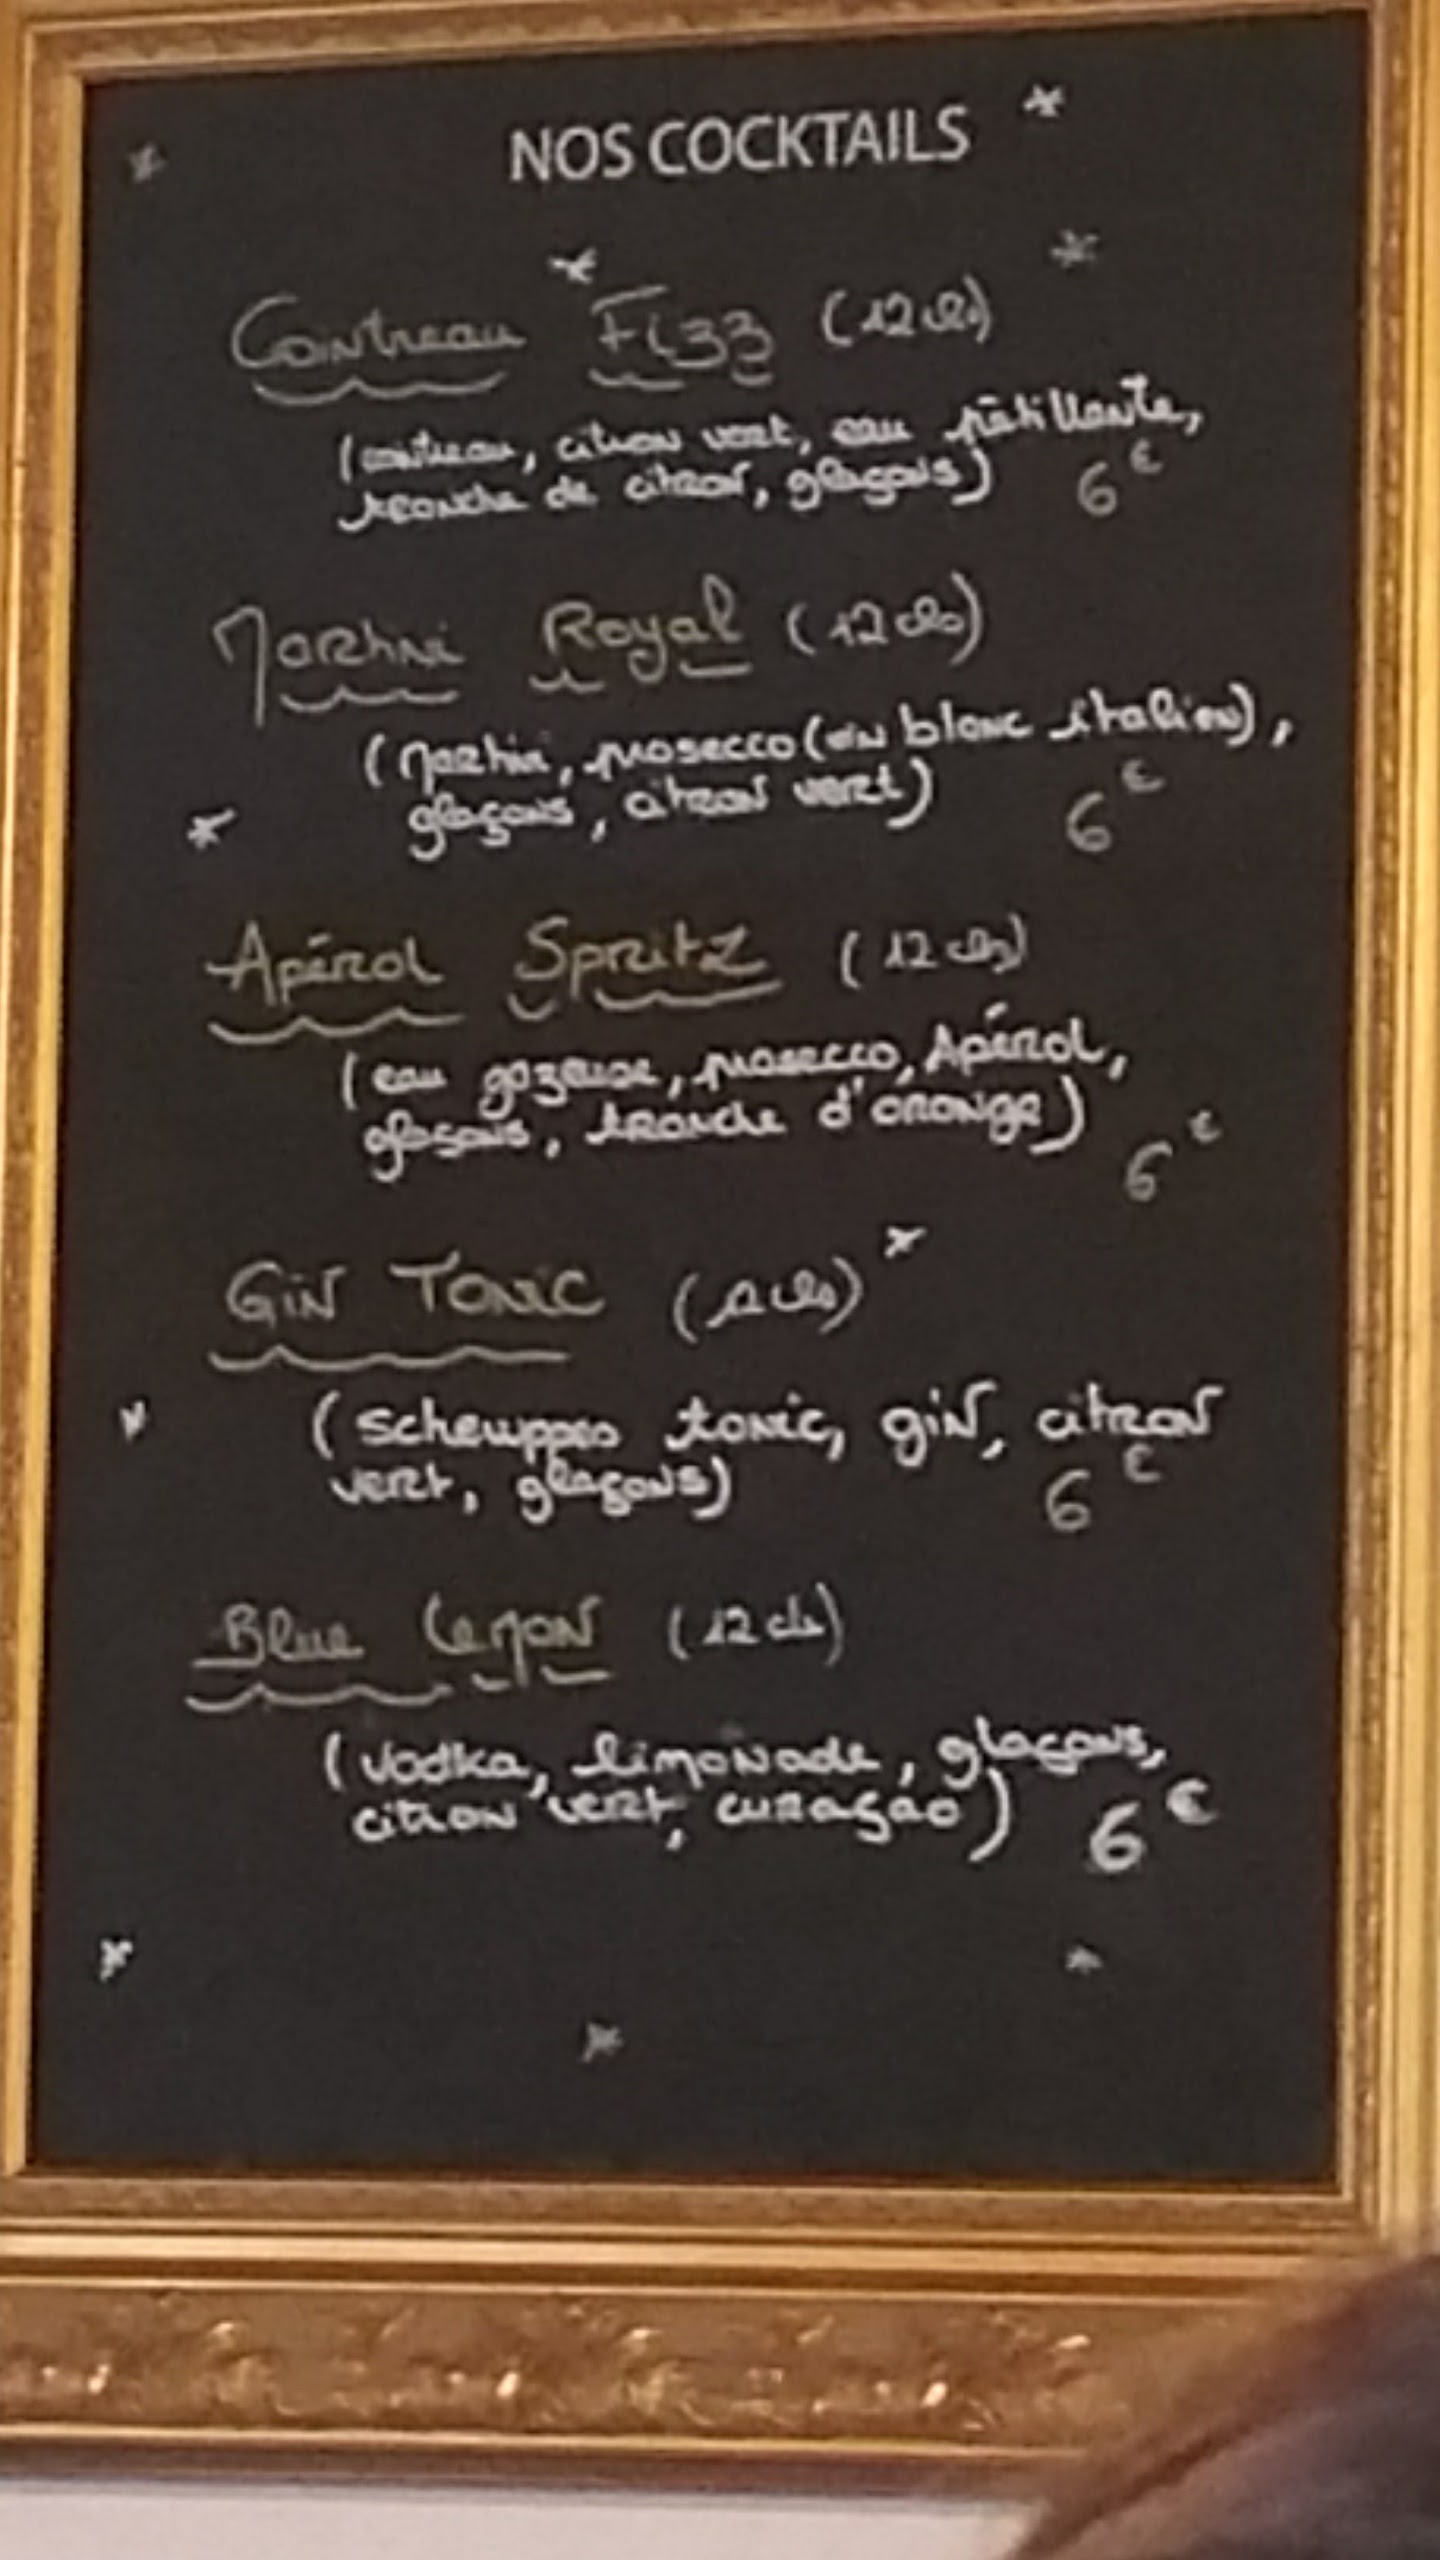 NOS COCKTAILS
Cointreau Fizz (12 cls)
(cointreau, citron vert, eau pétillante,
tranche de citron, glaçons) 6€
Martini Royal (12 cls)
(Martini, prosecco (vin blanc italien),
glaçons, citron vert) 6€
Apérol Spritz (12 cls)
(eau gazeuse, prosecco, Apérol,
glaçons, tranche d'orange) 6€
Gin Tonic (12 cls)
(schewppes tonic, gin, citron
vert, glaçons) 6€
Blue Lemon (12 cls)
(vodka, limonade, glaçons,
citron vert, curaçao) 6€